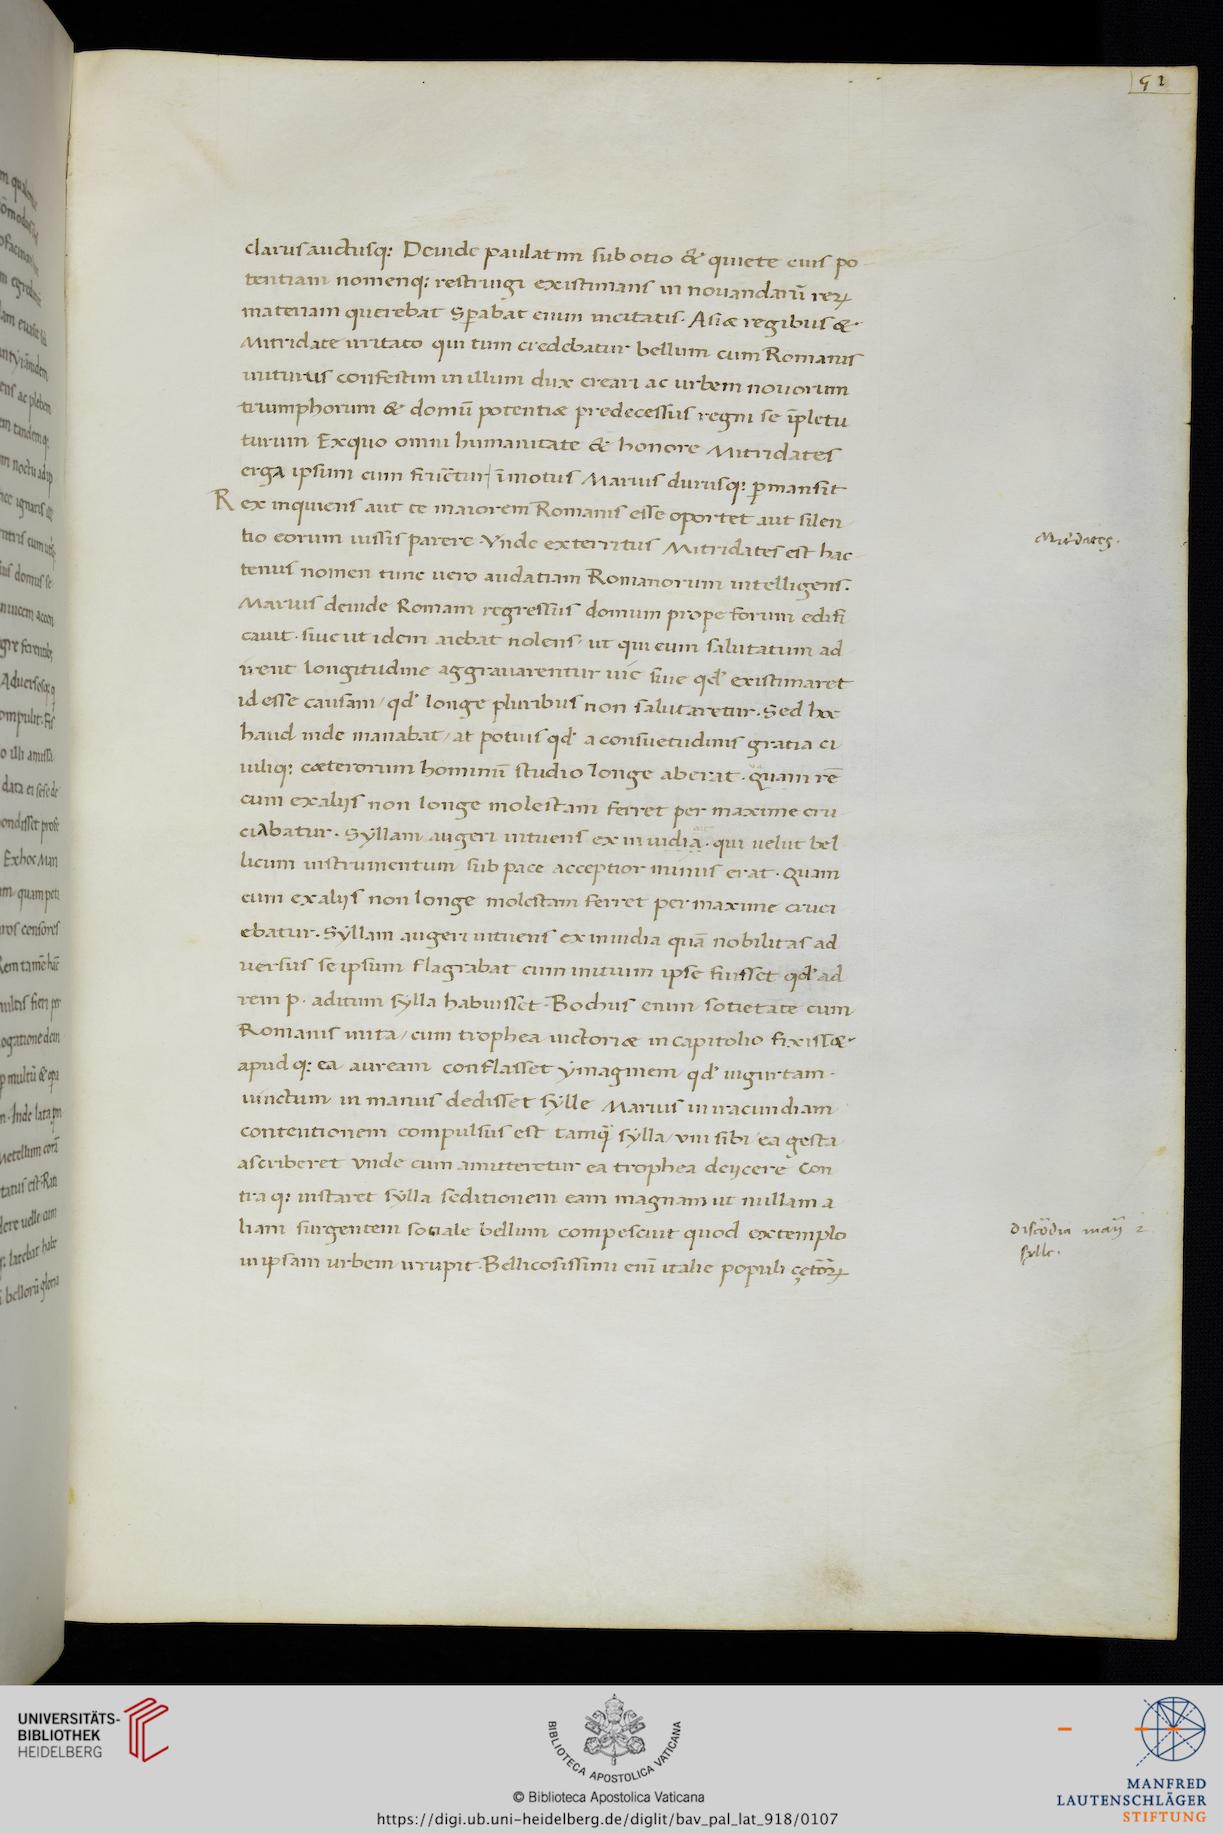 52
clarus auctusq: Deinde paulatim sub otio & quiete eius po
tentiam nomenq: restringi existimans in novandarū rerꝝ
materiam querebat Sperabat enim incitatis. Asiæ regibus &
Mitridate irritato qui tum credebatur bellum cum Romanis
initurus confestim in illum dux creari ac urbem novorum
triumphorum & domū potentiæ predecessus regni se īpletu
turum Exquo omni humanitate & honore Mitridates
erga ipsum cum / īmotus Marius durusq: ꝑmansit
Rex inquiens aut te maiorem Romanis esse oportet aut silen
tio eorum iussis parere. Vnde exterritus Mitridates est hac
tenus nomen tunc vero audatiam Romanorum intelligens.
Marius deinde Romam regressus domum prope forum edifi
cavit. sive ut idem aiebat nolens, ut qui eum salutatum ad
irent longitudine aggravarentur vie sive qd' existimaret
id esse causam / qd' longe pluribus non salutaretur. Sed hoc
haud inde manabat / at potius qd' a consuetudinis gratia ci
viliq: cæterorum hominū studio longe aberat. Quam rē
cum exaliis non longe molestam ferret per maxime cru
ciabatur. Syllam augeri intuens ex invidia. qui velut bel
licum instrumentum sub pace acceptior minus erat. Quam
cum exaliis non longe molestam ferret per maxime cruci
ebatur. Syllam augeri intuens ex invidia quā nobilitas ad
versus se ipsum flagrabat cum initium ipse fuisset qd' ad
rem p. aditum sylla habuisset. Bochus enim sotietate cum
Romanis inita / cum trophea victoriæ in capitolio fixiss&
apud q: ea auream conflasset ymaginem qd' iugurtam.
vinctum in manus dedisset sylle Marius in iracundiam
contentionem compulsus est tamq̄ sylla / uni sibi ea gesta
ascriberet Vnde cum anniteretur ea trophea deiicere Con
tra q: instaret sylla seditionem eam magnam ut nullam a
liam surgentem sotiale bellum compescuit quod extemplo
in ipsam urbem irrupit. Bellicosissimi enī italie populi
discōdia marii 2
sylle.
UNIVERSITÄTS-
BIBLIOTHEK
HEIDELBERG
BIBLIOTECA APOSTOLICA VATICANA
© Biblioteca Apostolica Vaticana
https://digi.ub.uni-heidelberg.de/diglit/bav_pal_lat_918/0107
MANFRED
LAUTENSCHLÄGER
STIFTUNG